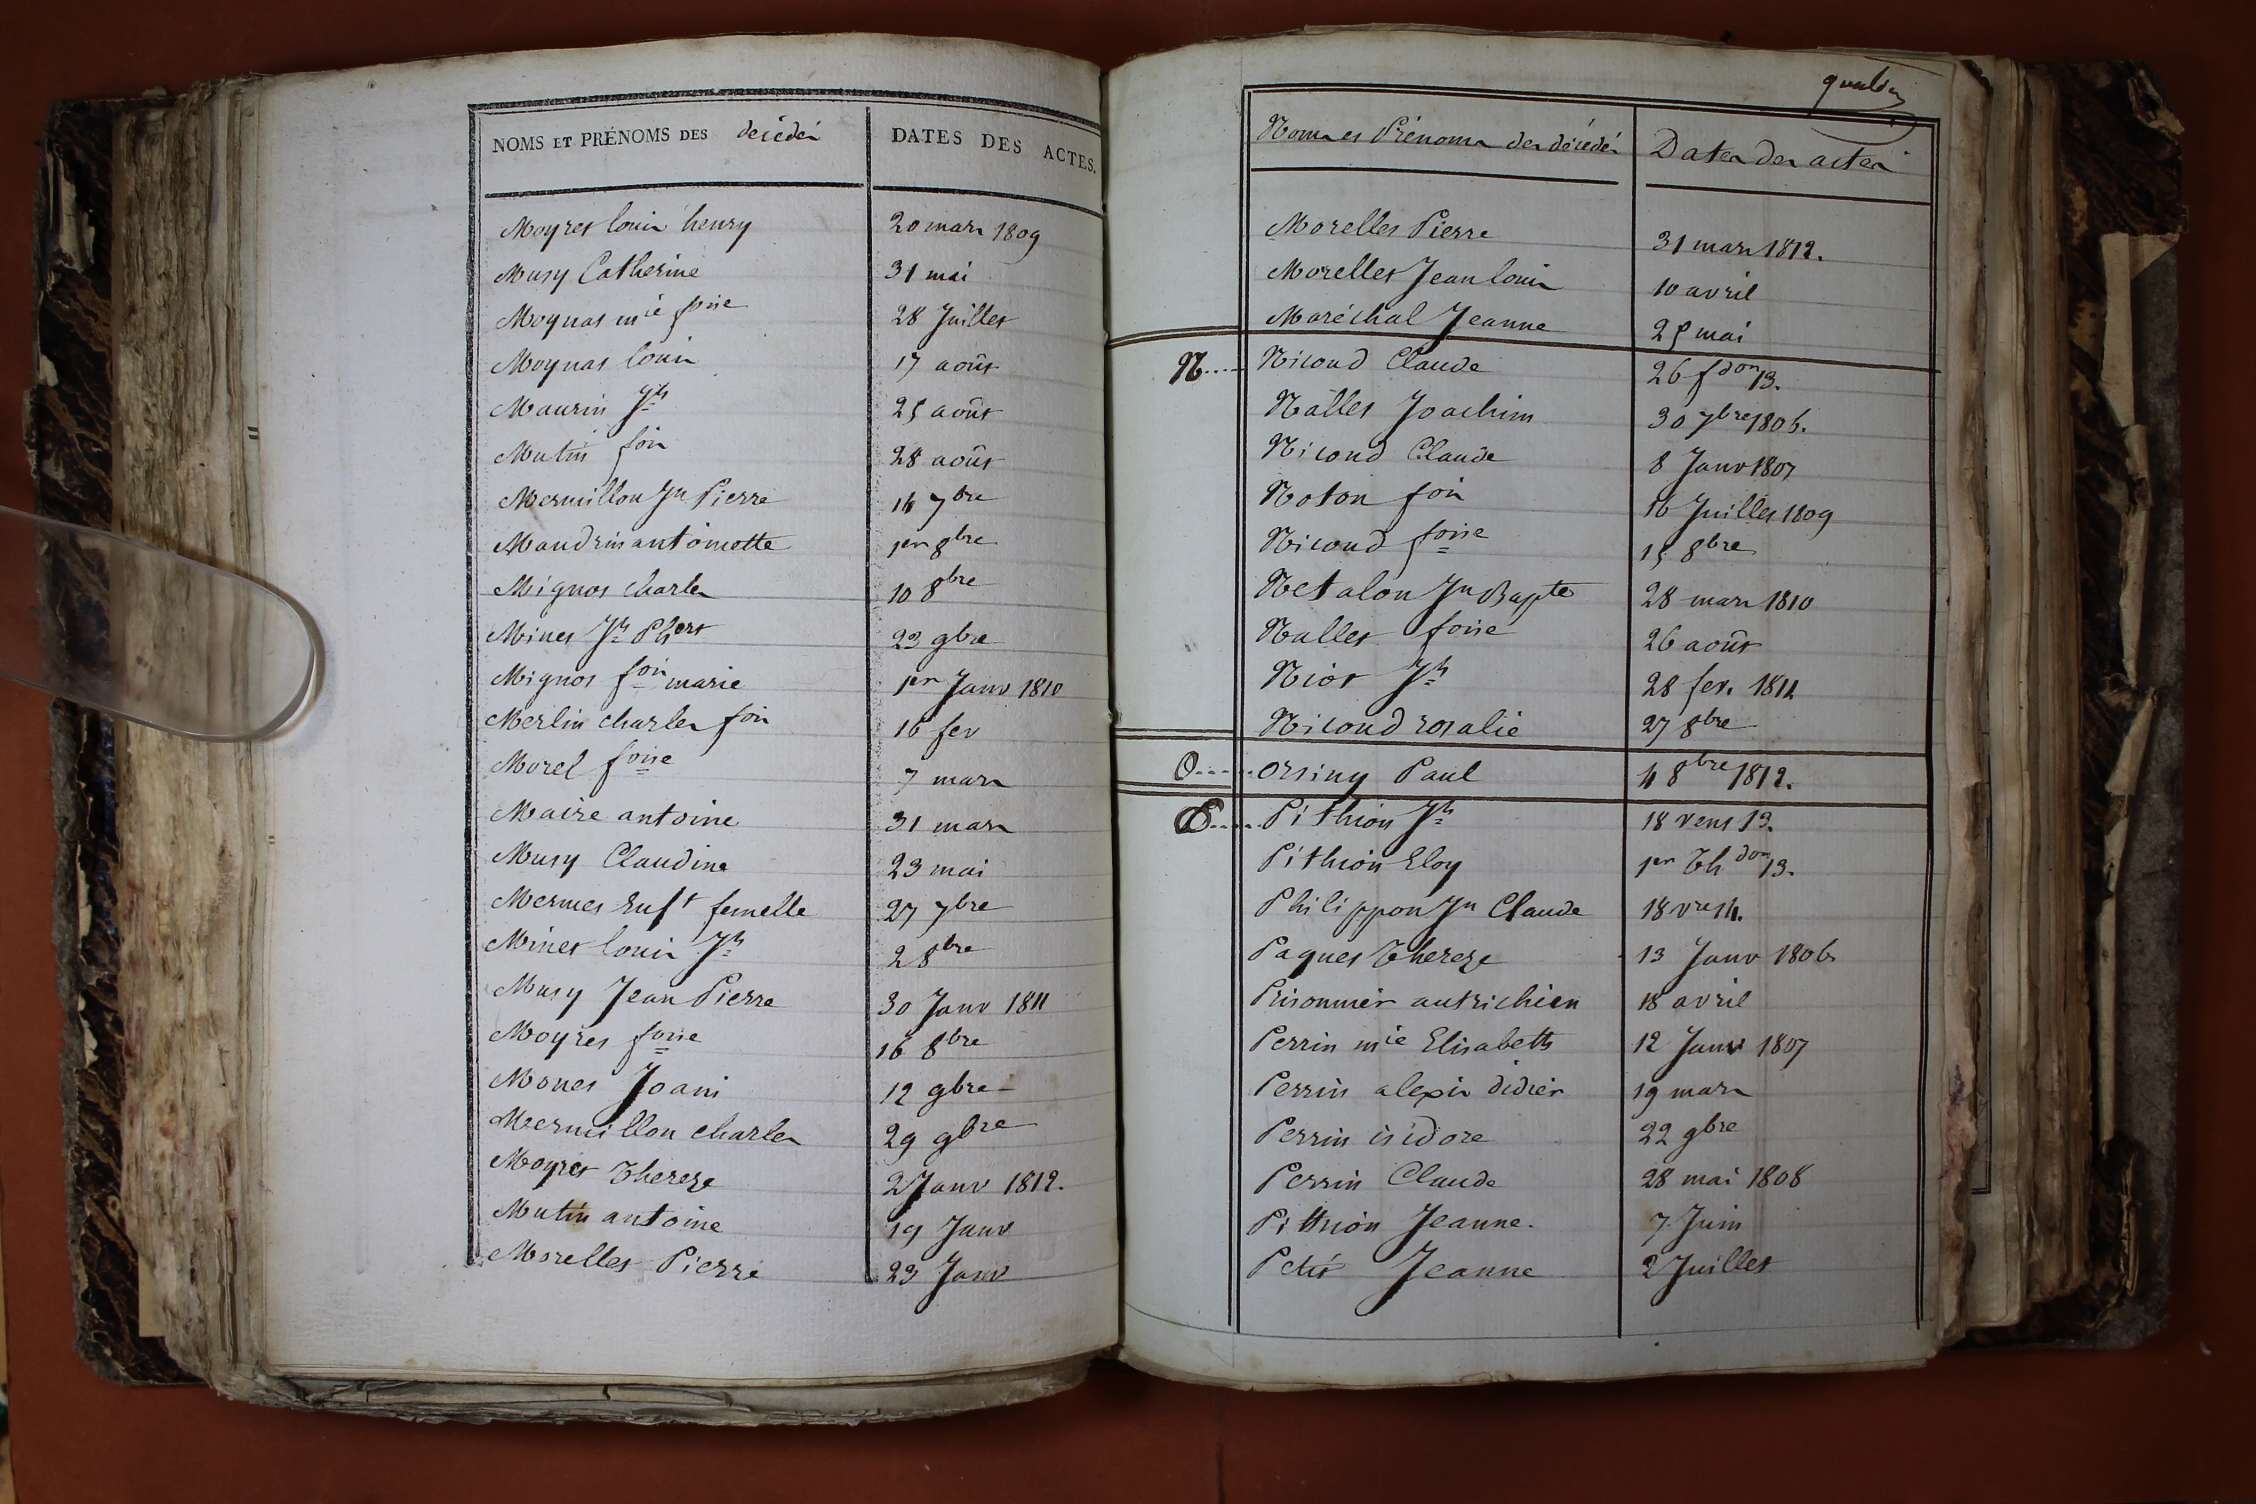 NOMS ET PRÉNOMS DES décédés
DATES DES ACTES.
Moyret louis henry 20 mars 1809
Musy Catherine 31 mai
Moynat mie foise 28 Juillet
Moynat louis 17 août
Maurin Jh 25 août
Mutin fois 28 août
Mermillon Jn Pierre 14 7bre
Maudrin antoinette 1er 8bre
Mignot charles 10 8bre
Minet Jh Phert 23 9bre
Mignot fois marie 1er Janv 1810
Merlin charles fois 16 fev
Morel foise 7 mars
Maire antoine 31 mars
Musy Claudine 23 mai
Mermet Enft femelle 27 7bre
Minet louis Jh 2 8bre
Musy Jean Pierre 30 Janv 1811
Moyret foise 16 8bre
Monet Joani 12 9bre
Mermillon charles 29 9bre
Moyret Thereze 2 Janv 1812.
Mutin antoine 19 Janv
Morellet Pierre 23 Janv
Noms et Prénoms des décédés
Dates des actes
Morellet Pierre 31 mars 1812.
Morellet Jean louis 10 avril
Maréchal Jeanne 25 mai
N..... Nicoud Claude 26 fdor 13.
Nallet Joachim 30 7bre 1806.
Nicoud Claude 8 Janv 1807
Noton fois 16 Juillet 1809
Nicoud foise 15 8bre
Netalon Jn Bapte 28 mars 1810
Nallet foise 26 août
Niot Jh 28 fev. 1811
Nicoud rosalie 27 8bre
O...... orsiny Paul 4 8bre 1812.
P..... Pithion Jh 18 vent 13.
Pithion Eloy 1er Thdor 13.
Philippon Jn Claude 18 vre 14.
Paquet Thereze 13 Janv 1806
Prisonnier autrichien 18 avril
Perrin mie Elisabeth 12 Janv 1807
Perrin alexis didier 19 mars
Perrin isidore 22 9bre
Perrin Claude 28 mai 1808
Pithion Jeanne. 7 Juin
Petit Jeanne 2 Juillet